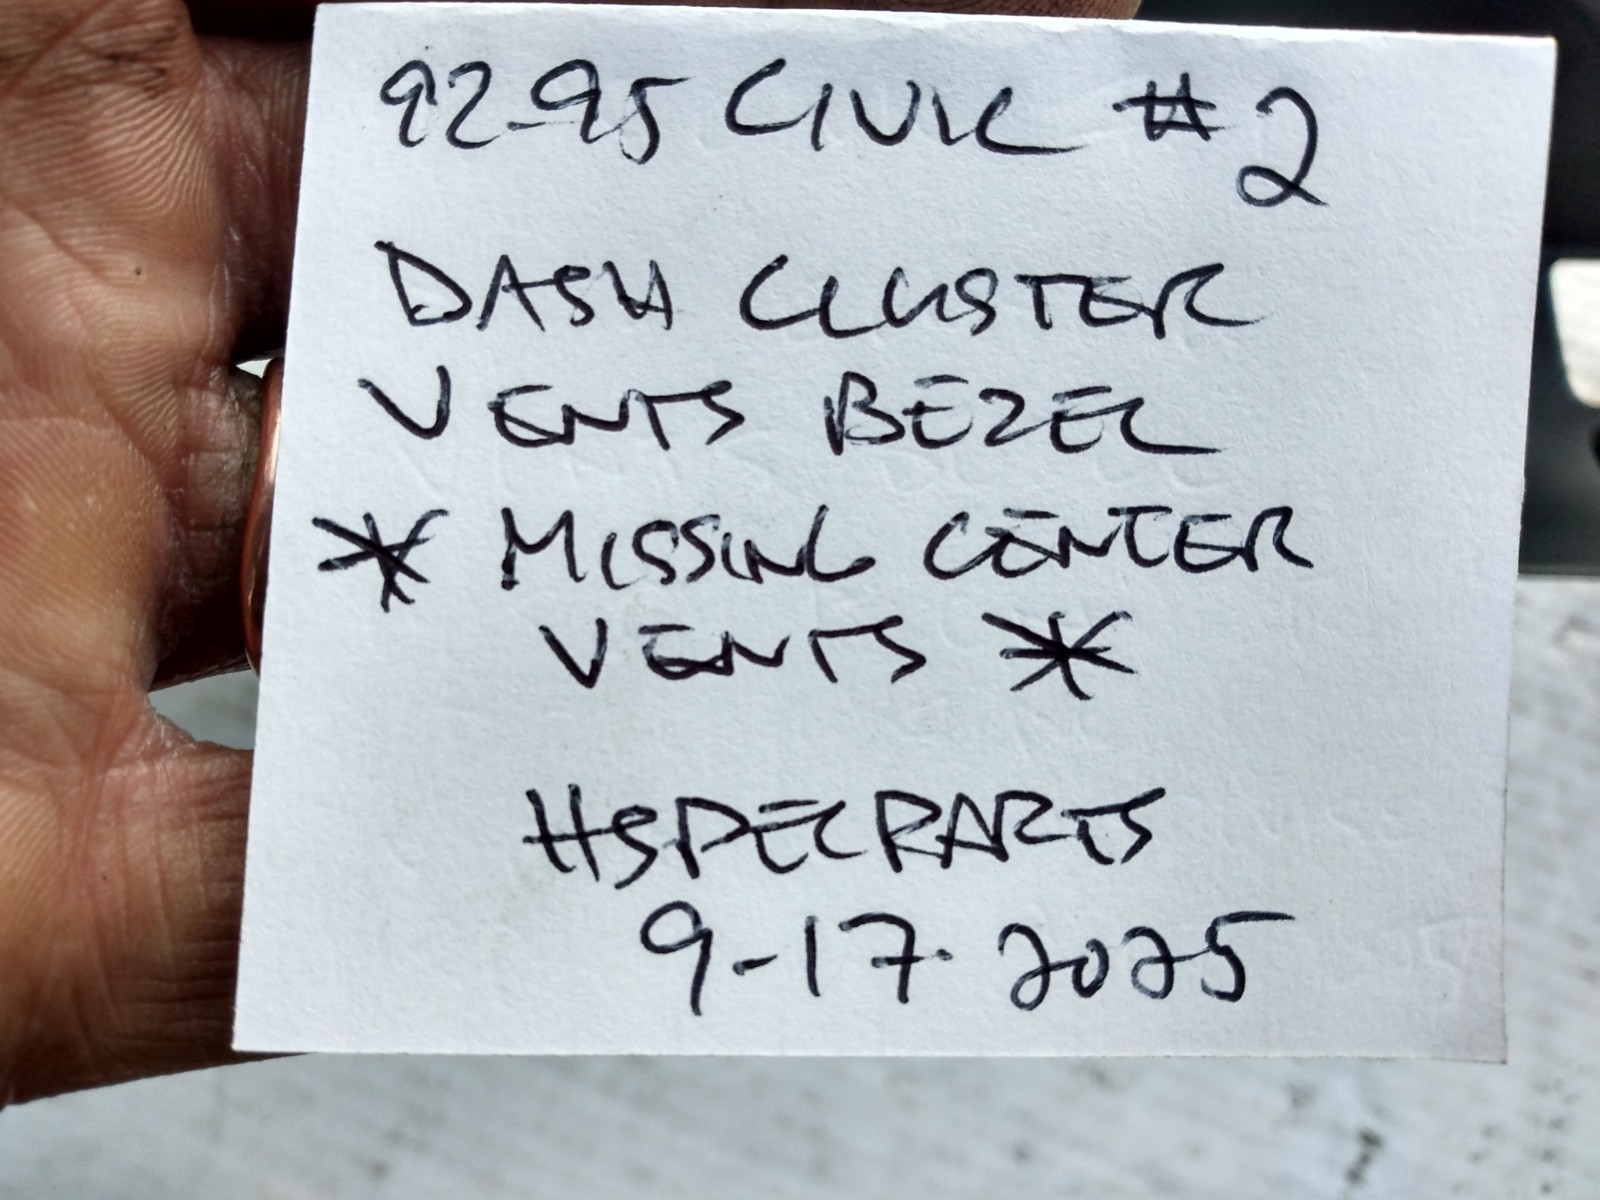 92-95 CIVIC #2
DASH CLUSTER
VENTS BEZEL
* MISSING CENTER
VENTS *
HSPECPARTS
9-17-2025